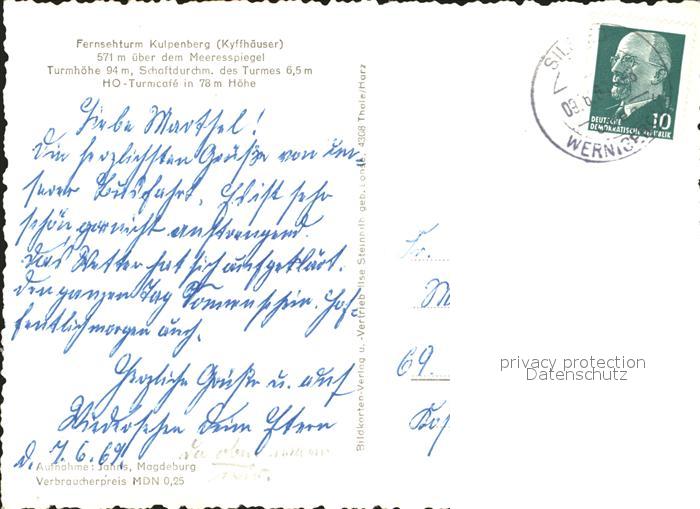 Fernsehturm Kulpenberg (Kyffhäuser)
571 m über dem Meeresspiegel
Turmhöhe 94 m, Schaftdurchm. des Turmes 6,5 m
HO-Turmcafé in 78 m Höhe
Liebe Marthel!
Die herzlichsten Grüße von un-
serer Busfahrt. Es ist sehr
schön gar nicht anstrengend.
Das Wetter hat sich aufgeklärt.
Den ganzen Tag Sonnenschein. Hof-
fentlich morgen auch.
Herzliche Grüße u. auf
Wiedersehen Deine Eltern
d. 7.6.69.
Aufnahme: Jahns, Magdeburg
Verbraucherpreis MDN 0,25
Bildkarten-Verlag u. -Vertrieb Ilse Steinruth geb. 4308 Thale/Harz
DEUTSCHE
DEMOKRATISCHE REPUBLIK
10
09.6.
WERNIGE
Fr.
M
69.
privacy protection
Datenschutz